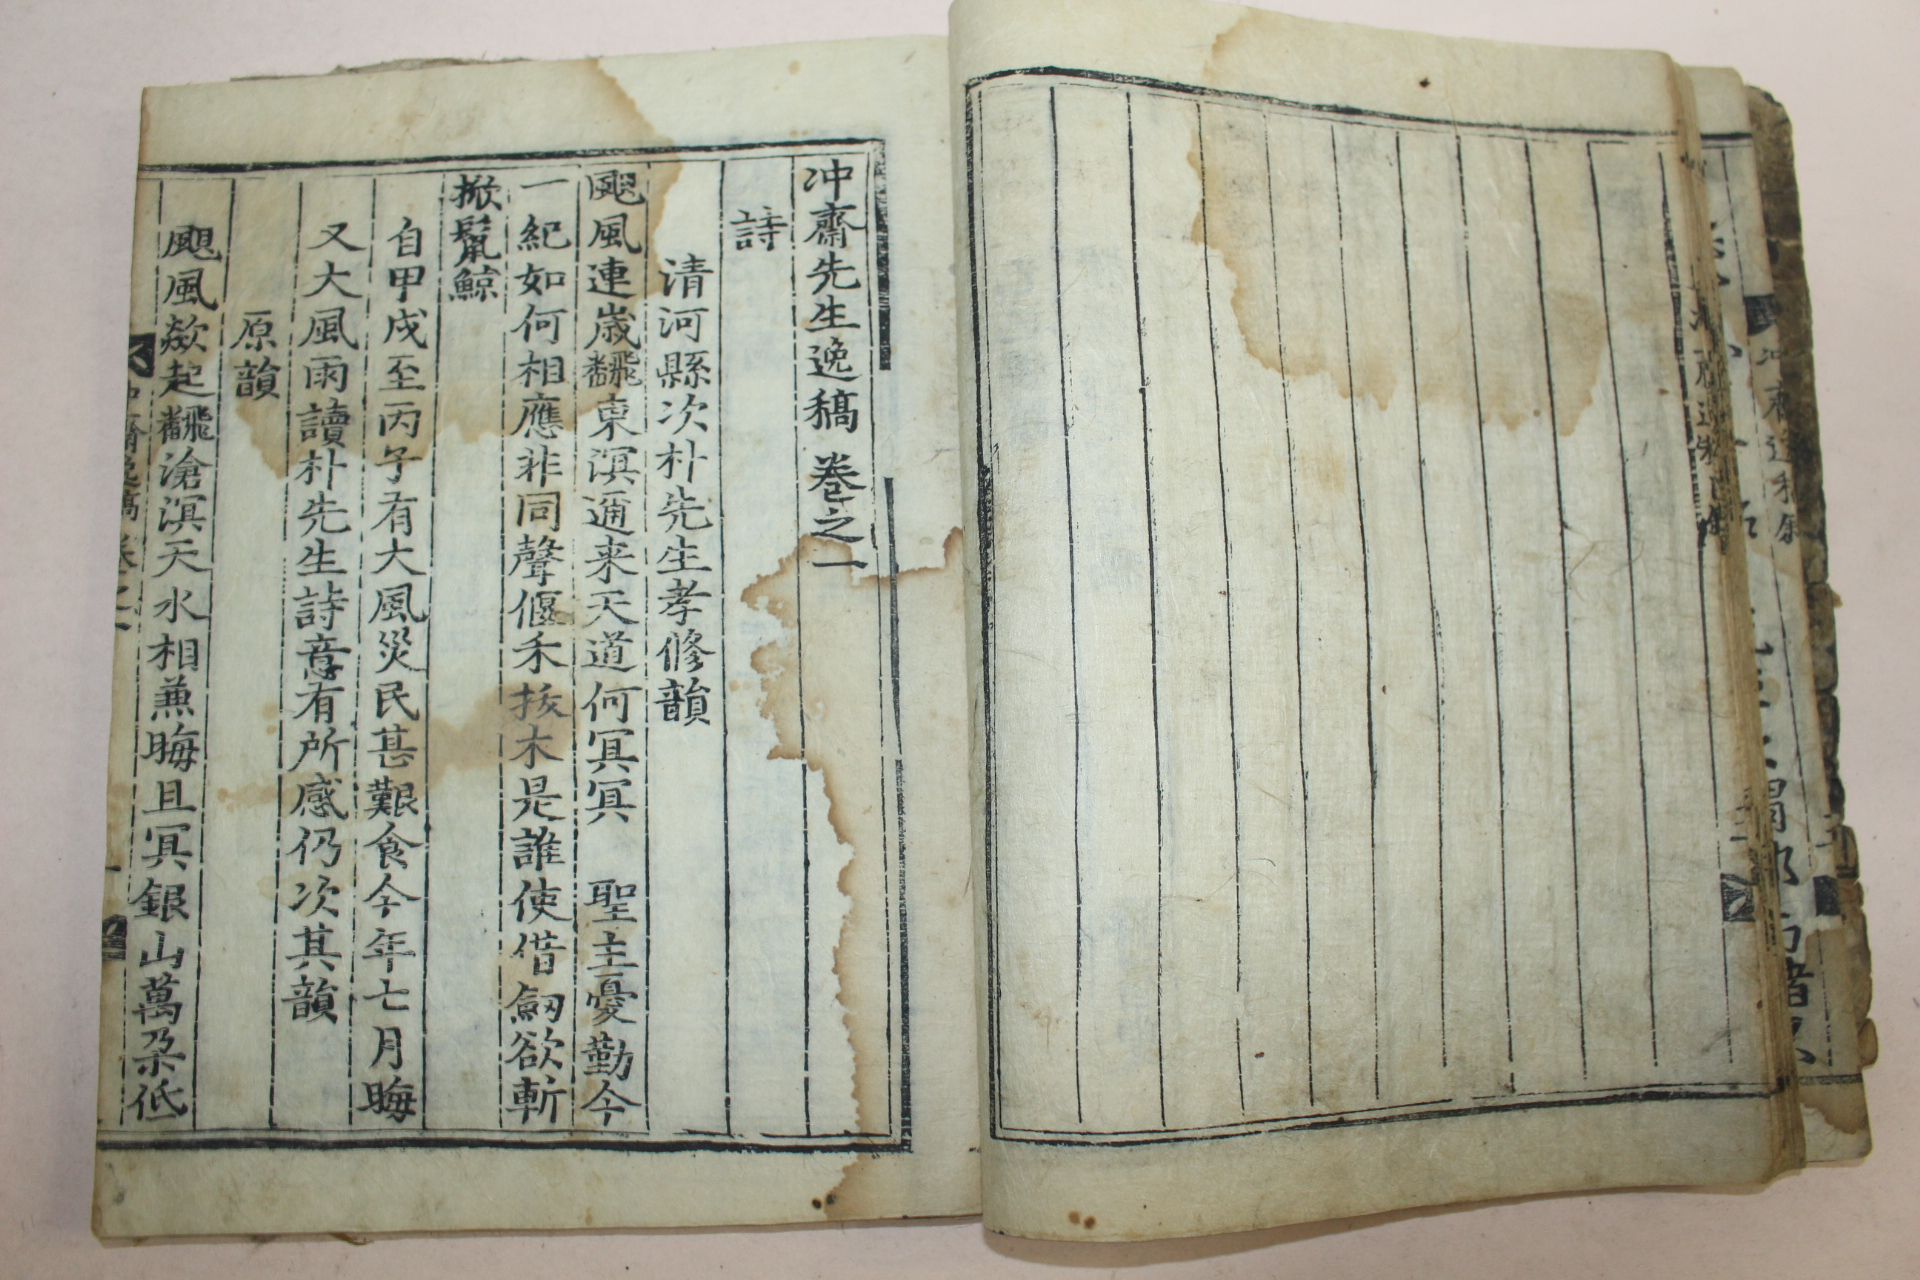 冲齋先生逸稿 卷之一
詩
清河縣次朴先生孝修韻
颶風連歲飜東溟邇来天道何冥冥 聖主憂勤今
一紀如何相應非同聲偃禾拔木是誰使借劒欲斬
掀鬣鯨
自甲戌至丙子有大風災民甚艱食今年七月晦
又大風雨讀朴先生詩意有所感仍次其韻
原韻
颶風欻起飜滄溟天水相兼晦且冥銀山萬朶低
冲齋逸稿 卷之一
一